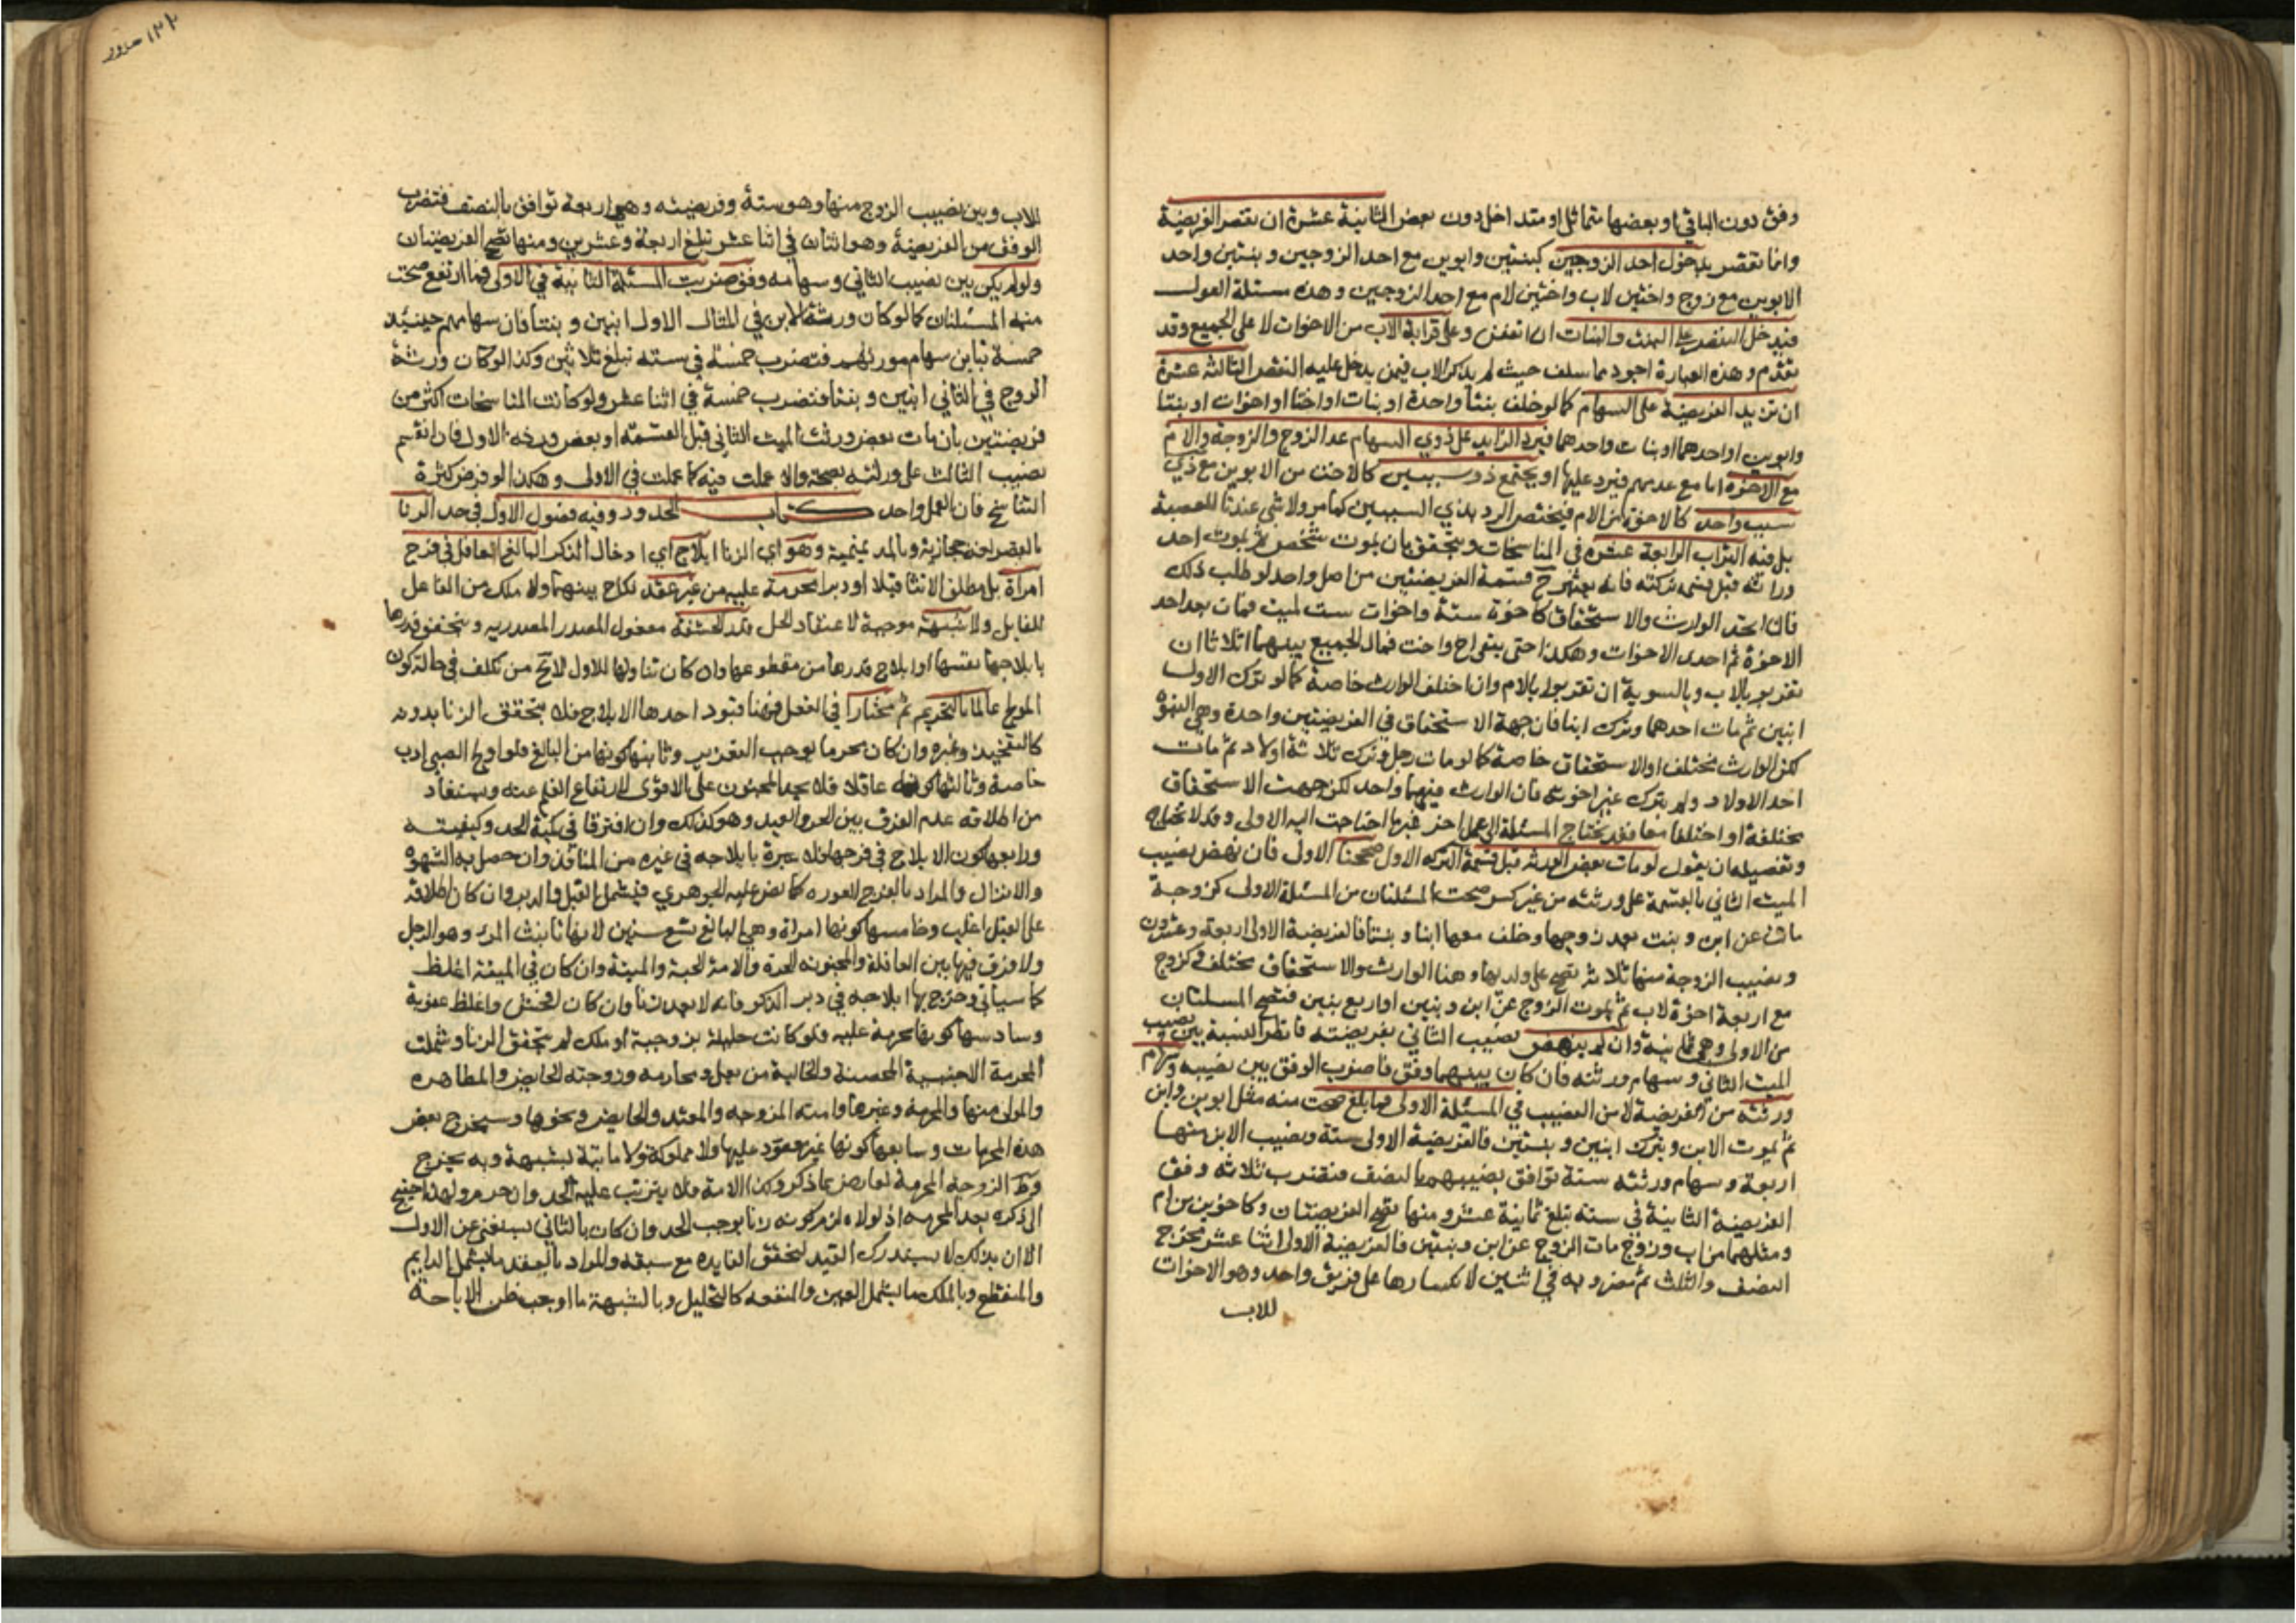 وفق دون الباقي او بعضها متماثل او متداخل دون بعض الثانية عشرة ان تقصر الفريضة
وانما تقصر بدخول احد الزوجين كبنتين وابوين مع احد الزوجين وبنتين واحد
الابوين مع زوج واختين لاب واختين لام مع احد الزوجين وهذه مسئلة العول
فيدخل النقص على البنت والبنات ان اتفقن وعلى قرابة الاب من الاخوات لا على الجميع وقد
تقدم وهذه العبارة اجود مما سلف حيث لم يذكر الاب فيمن يدخل عليه النقص الثالثة عشرة
ان تزيد الفريضة على السهام كما لو خلف بنتا واحدة او بنات او اختا او اخوات او بنتا
وابوين او احدهما او بنات واحدهما فيرد الزايد على ذوي السهام عدا الزوج والزوجة والام
مع الاخوة اما مع عدمهم فيرد عليها او يجتمع ذو سببين كالاخت من الابوين مع ذي
سبب واحد كالاخوة من الام فيختص الرد بذي السببين كما مر ولا شي عندنا للعصبة
بل فيه التراب الرابعة عشره في المناسخات ويتحقق بان يموت شخص ثم يموت احد
وراثه قبل قسمة تركته فانه يعتبر ح قسمة الفريضتين من اصل واحد لو طلب ذلك
فان اتحد الوارث والاستحقاق كاخوة ستة واخوات ست لميت فمات بعد احد
الاخوة ثم احدى الاخوات وهكذا حتى بقي اخ واخت فمال الجميع بينهما اثلاثا ان
تقربو بالاب وبالسوية ان تقربوا بالام وان اختلف الوارث خاصة كما لو ترك الاول
ابنين ثم مات احدهما وترك ابنا فان جهة الاستحقاق في الفريضتين واحدة وهي البنوة
لكن الوارث مختلف او الاستحقاق خاصة كما لو مات رجل وترك ثلاثة اولاد ثم مات
احد الاولاد ولم يترك غير اخوته فان الوارث فيهما واحد لكن جهت الاستحقاق
مختلفة او اختلفا معا فقد يحتاج المسئلة الى عمل اخر غير ما احتاجت اليه الاولى وقد لا تحتاج
وتفصيله ان يقول لو مات بعض الورثه قبل قسمة التركه الاول صححنا الاول فان نهض نصيب
الميت الثاني بالقسمة على ورثته من غير كسر صحت المسئلتان من المسئلة الاولى كزوجة
ماتت عن ابن وبنت بعد زوجها وخلف معها ابنا وبنتا فالفريضة الاولى اربعة وعشرون
ونصيب الزوجة منها ثلاثة تصح على ولديها وهنا الوارث والاستحقاق مختلف وكزوج
مع اربعة اخوة لاب ثم يموت الزوج عن ابن وبنتين او اربع بنين فتصح المسئلتان
من الاولى وهي ثمانية وان لم ينهض نصيب الثاني بفريضته فانظر النسبة بين نصيب
الميت الثاني وسهام ورثته فان كان بينهما وفق فاضرب الوفق بين نصيبه وسهام
ورثته من الفريضة لا من النصيب في المسئلة الاولى فما بلغ صحت منه مثل ابوين وابن
ثم يموت الابن ويترك ابنين وبنتين فالفريضة الاولى ستة ونصيب الابن منها
اربعة وسهام ورثته ستة توافق نصيبهم بالنصف فتضرب ثلاثه وفق
الفريضة الثانية في ستة تبلغ ثمانية عشر ومنها تصح الفريضتان وكاخوين من ام
ومثلهما من اب وزوج مات الزوج عن ابن وبنتين فالفريضة الاولى اثنا عشر مخرج
النصف والثلث ثم مضروبه في اثنين لانكسارها على فريق واحد وهو الاخوات
للاب
١٢٢
للاب وبين نصيب الزوج منها وهو ستة وفريضته وهي اربعة توافق بالنصف فتضرب
الوفق من الفريضة وهو اثنان في اثنا عشر تبلغ اربعة وعشرين ومنها تصح الفريضتان
ولو لم يكن بين نصيب الثاني وسهامه وفق ضربت المسئلة الثانية في الاولى فما ارتفع صحت
منه المسئلتان كما لو كان ورثة الابن في المثال الاول ابنين وبنتا فان سهامهم حينئذ
خمسة تباين سهام مورثهم فتضرب خمسة في سته تبلغ ثلاثين وكذا لو كان ورثة
الزوج في الثاني ابنين وبنتا فتضرب خمسة في اثنا عشر ولو كانت المناسخات اكثر من
فريضتين بان مات بعض ورثت الميت الثاني قبل القسمه او بعض ورثه الاول فان انقسم
نصيب الثالث على ورثته بصحة والا عملت فيه كما عملت في الاولى وهكذا لو فرض كثرة
التناسخ فان العمل واحد كتاب الحدود وفيه فصول الاول في حد الزنا
بالقصر لغه حجازية وبالمد تميمية وهو اي الزنا ايلاج اي ادخال الذكر البالغ العاقل في فرج
امراة بل مطلق الانثا قبلا او دبرا محرمة عليه من غير عقد نكاح بينهما ولا ملك من الفاعل
للقابل ولا شبهة موجبة لاعتقاد الحل قدر الحشفة مفعول المصدر المصدر به ويتحقق قدرها
بايلاجها نفسها او ايلاج قدرها من مقطوعها وان كان تناولها للاول لا يخ من تكلف في حالة كون
المولج عالما بالتحريم ثم مختارا في الفعل فهنا قيود احدها الايلاج فلا يتحقق الزنا بدونه
كالتفخيذ وغيره وان كان محرما يوجب التعزير وثانيها كونها من البالغ فلو اولج الصبي ادب
خاصة وثالثها كونه عاقلا فلا يحد المجنون على الاقوى لارتفاع القلم عنه ويستفاد
من اطلاقه عدم الفرق بين الحر والعبد وهو كذلك وان افترقا في كمية الحد وكيفيته
ورابعها كون الايلاج في فرجها فلا عبرة بايلاجه في غيره من المنافذ وان حصل به الشهوة
والانزال والمراد بالفرج العوره كما نص عليه الجوهري فيشمل القبل والدبر وان كان اطلاقه
على القبل اغلب وخامسها كونها امراة وهي البالغ تسع سنين لانها تانيث المرء وهو الرجل
ولا فرق فيها بين العاقلة والمجنونه الحرة والامة الحية والميتة وان كان في الميتة اغلظ
كما سياتي وخرج بها ايلاجه في دبر الذكر فانه لا يعد زنا وان كان افحش واغلظ عقوبة
وسادسها كونها محرمة عليه فلو كانت حليلة بزوجية او ملك لم يتحقق الزنا وشملت
المحرمة الاجنبية المحصنة والخالية من بعل ومحارمه وزوجته الحايض والمظاهره
والمولى منها والمحرمة وغيرها وامته المزوجه والمعتده والحايض ونحوها وسيخرج بعض
هذه المحرمات وسابعها كونها غير معقود عليها ولا مملوكة ولا ماتية بشبهة وبه يخرج
وطي الزوجة المحرمة لعارض مما ذكر وكذا الامة فلا يترتب عليه الحد وان حرم ولهذا احتيج
الى ذكره بعد المحرمه اذ لولاه لزم كونه زنا يوجب الحد وان كان بالثاني يستغنى عن الاول
الا ان بذلك لا يستدرك القيد لتحقق الفايده مع سبقه والمراد بالعقد ما يشمل الدايم
والمنقطع وبالملك ما يشمل العين والمنفعه كالتحليل وبالشبهة ما اوجب ظن الاباحة